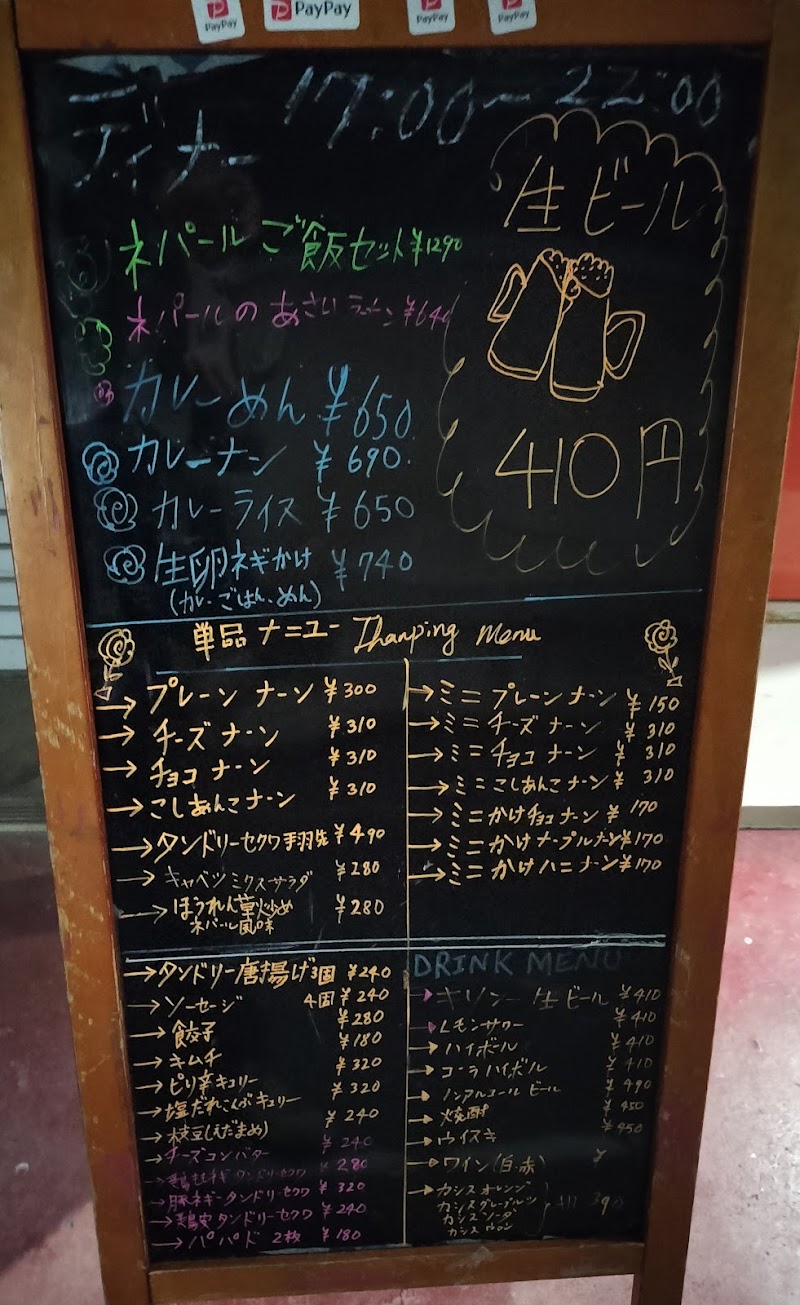 PayPay
PayPay
PayPay
PayPay
ディナー 17:00〜22:00
生ビール
410円
ネパールご飯セット¥1290
ネパールのあさいラーメン¥640
カレーめん ¥650
カレーナン ¥690
カレーライス ¥650
生卵ネギかけ ¥740
(カレーごはん、めん)
単品ナニュー Thamping Menu
→プレーンナーン ¥300
→チーズナーン ¥310
→チョコナーン ¥310
→こしあんこナーン ¥310
→タンドリーセクワ手羽先 ¥490
→キャベツミクスサラダ ¥280
→ほうれん草炒め ¥280
ネパール風味
→ミニプレーンナーン ¥150
→ミニチーズナーン ¥310
→ミニチョコナーン ¥310
→ミニこしあんこナーン ¥310
→ミニかけチョコナーン ¥170
→ミニかけナープルナーン¥170
→ミニかけハニナーン¥170
→タンドリー唐揚げ3国 ¥240
→ソーセージ 4国 ¥240
→餃子 ¥280
→キムチ ¥180
→ピリ辛キュリー ¥320
→塩だれこんぶキュリー ¥320
→枝豆(えだまめ) ¥240
→チーズコンバター ¥240
タンドリーセクワ ¥280
→豚ネギータンドリーセクワ ¥320
→タンドリーセクワ ¥240
→パパド 2枚 ¥180
DRINK MENU
キリン一生ビール ¥410
レモンサワー ¥410
→ハイボール ¥410
→コーラハイボル ¥410
→ノンアルコールビール ¥490
→焼酎 ¥450
→ウイスキ ¥450
→ワイン(白.赤) ¥
→カシスオレンジ
カシスグレープルツ
カシスソーダ
カシスウロン
All 390